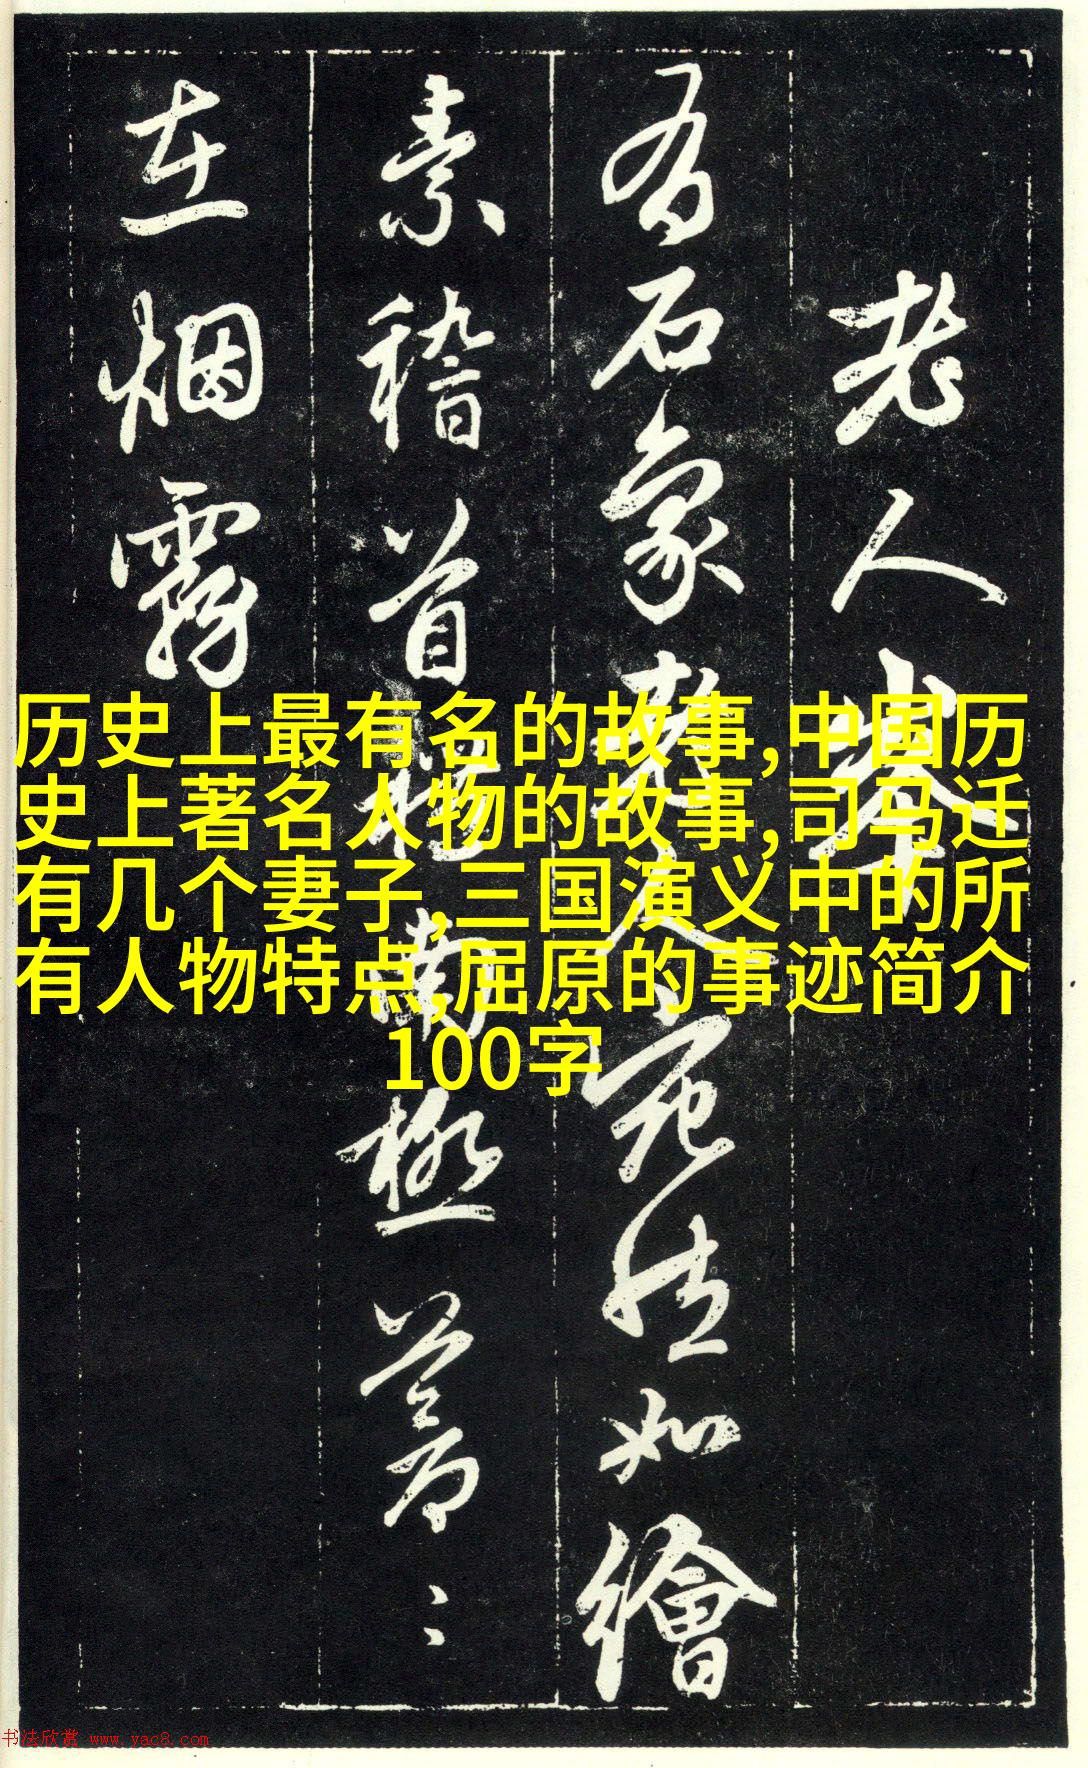 老人峰
有石象老人宛然如繪
素稽首南極蒼蒼
在烟霧
历史上最有名的故事,中国历
史上著名人物的故事,司马迁
有几个妻子,三国演义中的所
有人物特点,屈原的事迹简介
100字
书法欣赏 www.yac8.com